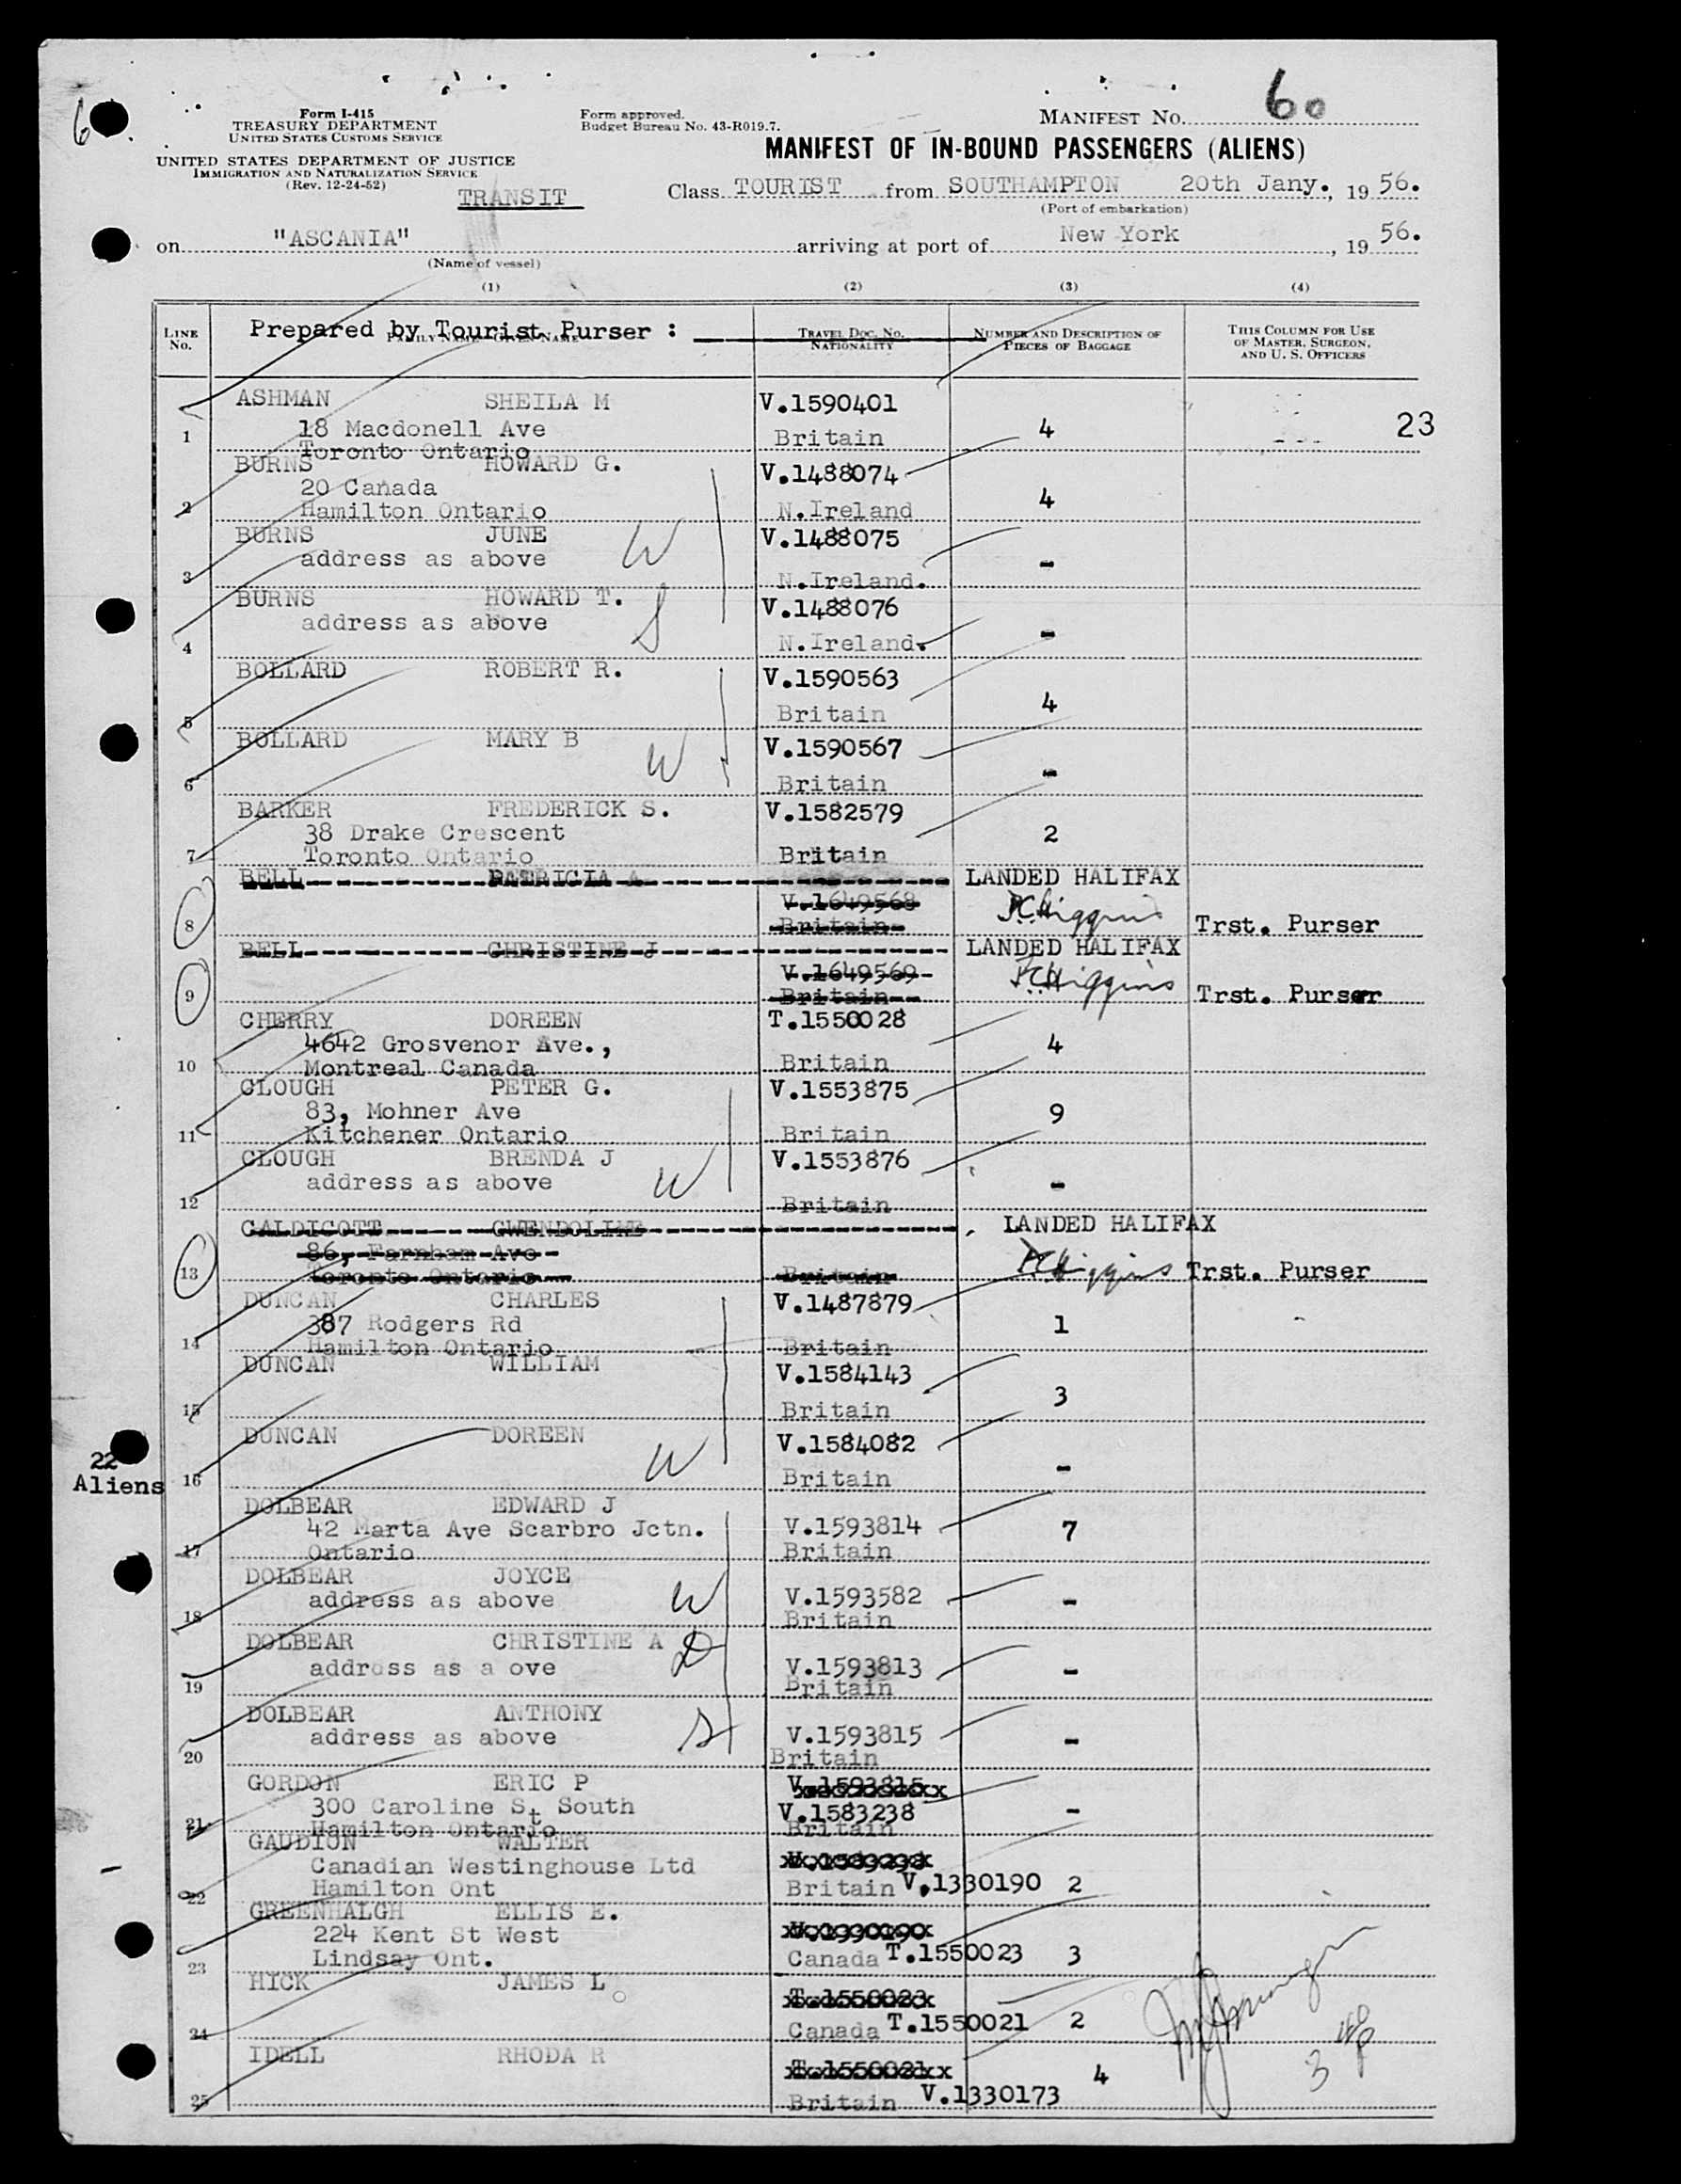 6
Form I-415
TREASURY DEPARTMENT
UNITED STATES CUSTOMS SERVICE
UNITED STATES DEPARTMENT OF JUSTICE
IMMIGRATION AND NATURALIZATION SERVICE
(Rev. 12-24-52)
TRANSIT
Form approved.
Budget Bureau No. 43-R019.7.
MANIFEST NO. 60
MANIFEST OF IN-BOUND PASSENGERS (ALIENS)
Class TOURIST from SOUTHAMPTON 20th Jany., 19 56.
(Port of embarkation)
on "ASCANIA" arriving at port of New York, 19 56.
(Name of vessel)
(1) (2) (3) (4)
LINE NO. FAMILY NAME GIVEN NAME TRAVEL DOC. NO. NATIONALITY NUMBER AND DESCRIPTION OF PIECES OF BAGGAGE THIS COLUMN FOR USE OF MASTER, SURGEON, AND U. S. OFFICERS
Prepared by Tourist Purser :
ASHMAN SHEILA M V.1590401
1 18 Macdonell Ave Britain 4 23
Toronto Ontario
BURNS HOWARD G. V.1488074
20 Canada 4
2 Hamilton Ontario N.Ireland
BURNS JUNE W V.1488075
address as above -
3 N.Ireland.
BURNS HOWARD T. S V.1488076
address as above -
4 N.Ireland.
BOLLARD ROBERT R. V.1590563
5 Britain 4
BOLLARD MARY B W V.1590567
6 Britain -
BARKER FREDERICK S. V.1582579
38 Drake Crescent 2
7 Toronto Ontario Britain
BELL PATRICIA A LANDED HALIFAX
8 V.1649568 Britain P.C.Higgins Trst. Purser
BELL CHRISTINE J LANDED HALIFAX
9 V.1649569 Britain P.C.Higgins Trst. Purser
CHERRY DOREEN T.1550028
4642 Grosvenor Ave., 4
10 Montreal Canada Britain
CLOUGH PETER G. V.1553875
83, Mohner Ave 9
11 Kitchener Ontario Britain
CLOUGH BRENDA J W V.1553876
address as above -
12 Britain
CALDICOTT GWENDOLINE LANDED HALIFAX
86, Farnham Ave
13 Toronto Ontario Britain P.C.Higgins Trst. Purser
DUNCAN CHARLES V.1487879
387 Rodgers Rd 1
14 Hamilton Ontario Britain
DUNCAN WILLIAM V.1584143
15 Britain 3
DUNCAN DOREEN W V.1584082
22 Aliens
16 Britain -
DOLBEAR EDWARD J
42 Marta Ave Scarbro Jctn. V.1593814 7
17 Ontario Britain
DOLBEAR JOYCE W
address as above V.1593582 -
18 Britain
DOLBEAR CHRISTINE A D
address as a ove V.1593813 -
19 Britain
DOLBEAR ANTHONY S
address as above V.1593815 -
20 Britain
GORDON ERIC P V.1593815
300 Caroline St South V.1583238 -
21 Hamilton Ontario Britain
GAUDION WALTER
Canadian Westinghouse Ltd V.1583238
22 Hamilton Ont Britain V.1330190 2
GREENHALGH ELLIS E.
224 Kent St West V.1330190
23 Lindsay Ont. Canada T.1550023 3
HICK JAMES L T.1550023
24 Canada T.1550021 2
IDELL RHODA R T.1550021 4 3
25 Britain V.1330173